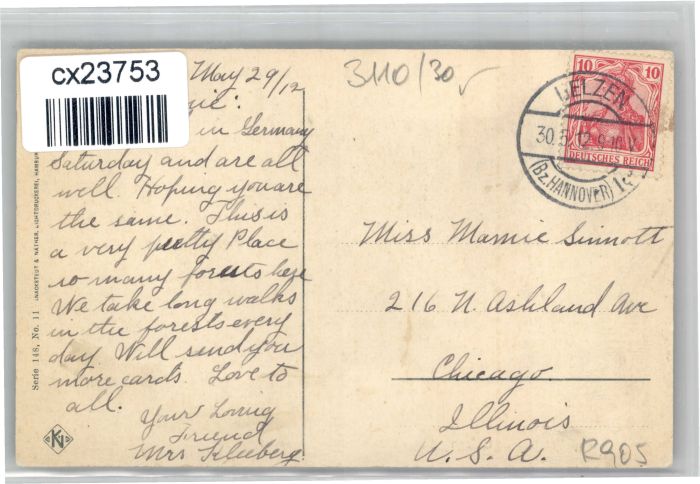 cx23753
May 29/12
3110/30
in Germany
Saturday and are all
well. Hoping you are
the same. This is
a very pretty Place
so many forests here
We take long walks
in the forests every
day. Will send you
more cards. Love to
all.
Your Loving
Friend
Mrs Klieberg
10 10
DEUTSCHES REICH
UELZEN
30.5.12.9-10V.
(Bz. HANNOVER)
Miss Mamie Sinnott
216 N. Ashland Ave
Chicago
Illinois
U. S. A.
R905
Serie 148, No. 11 KNACKSTEDT & NÄTHER, LICHTDRUCKEREI, HAMBURG
KN